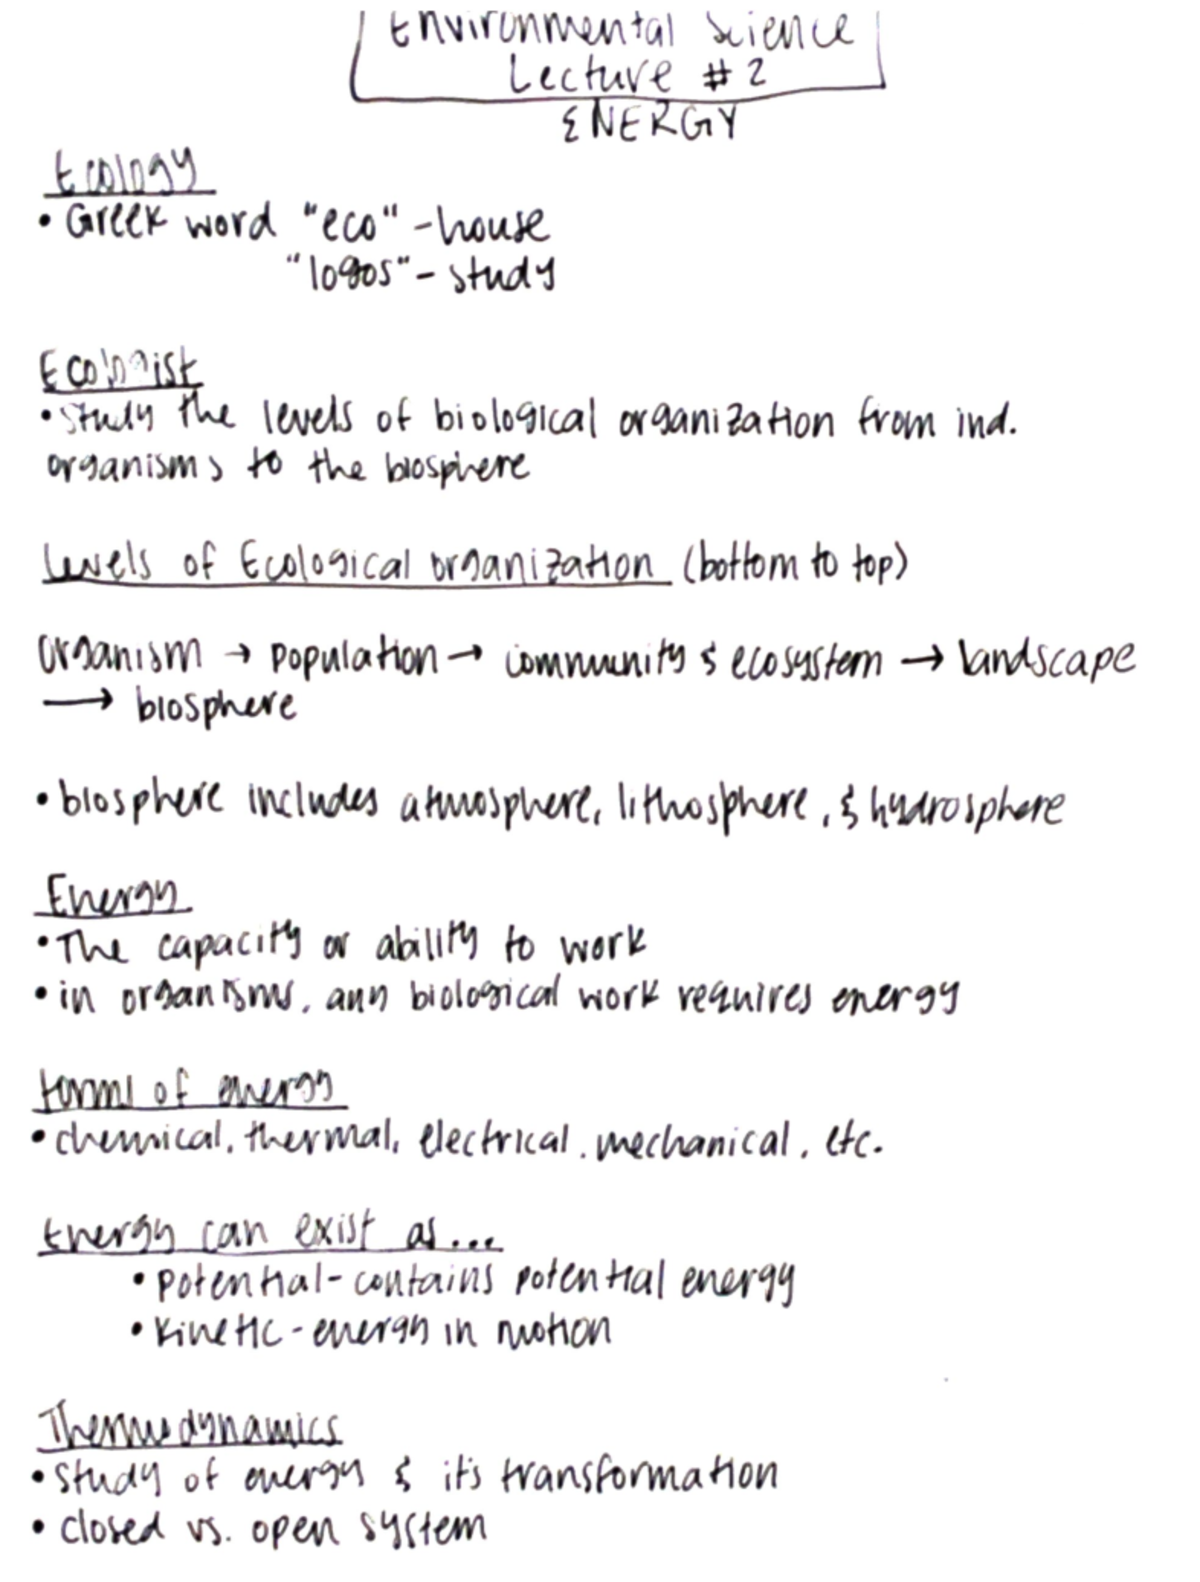 Environmental Science
Lecture # 2
ENERGY
Ecology
• Greek word "eco" - house
"logos" - study
Ecologist
• Study the levels of biological organization from ind.
organisms to the biosphere
Levels of Ecological organization (bottom to top)
Organism → population → community & ecosystem → landscape
→ biosphere
• biosphere includes atmosphere, lithosphere, & hydrosphere
Energy
• The capacity or ability to work
• in organisms, any biological work requires energy
forms of energy
• chemical, thermal, electrical, mechanical, etc.
Energy can exist as...
• Potential - contains potential energy
• Kinetic - energy in motion
Thermodynamics
• Study of energy & it's transformation
• closed vs. open system